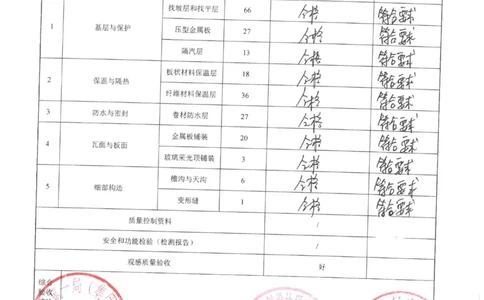 找坡层和找平层 66 合格 符合要求
1 基层与保护 压型金属板 27 合格 符合要求
隔汽层 13 合格 符合要求
2 保温与隔热 板状材料保温层 18 合格 符合要求
纤维材料保温层 36 合格 符合要求
3 防水与密封 卷材防水层 27 合格 符合要求
4 瓦面与板面 金属板铺装 20 合格 符合要求
玻璃采光顶铺装 3 合格 符合要求
5 细部构造 檐沟与天沟 6 合格 符合要求
变形缝 1 合格 符合要求
质量控制资料 /
安全和功能检验（检测报告） /
观感质量验收 好
综合
验收
一局（集